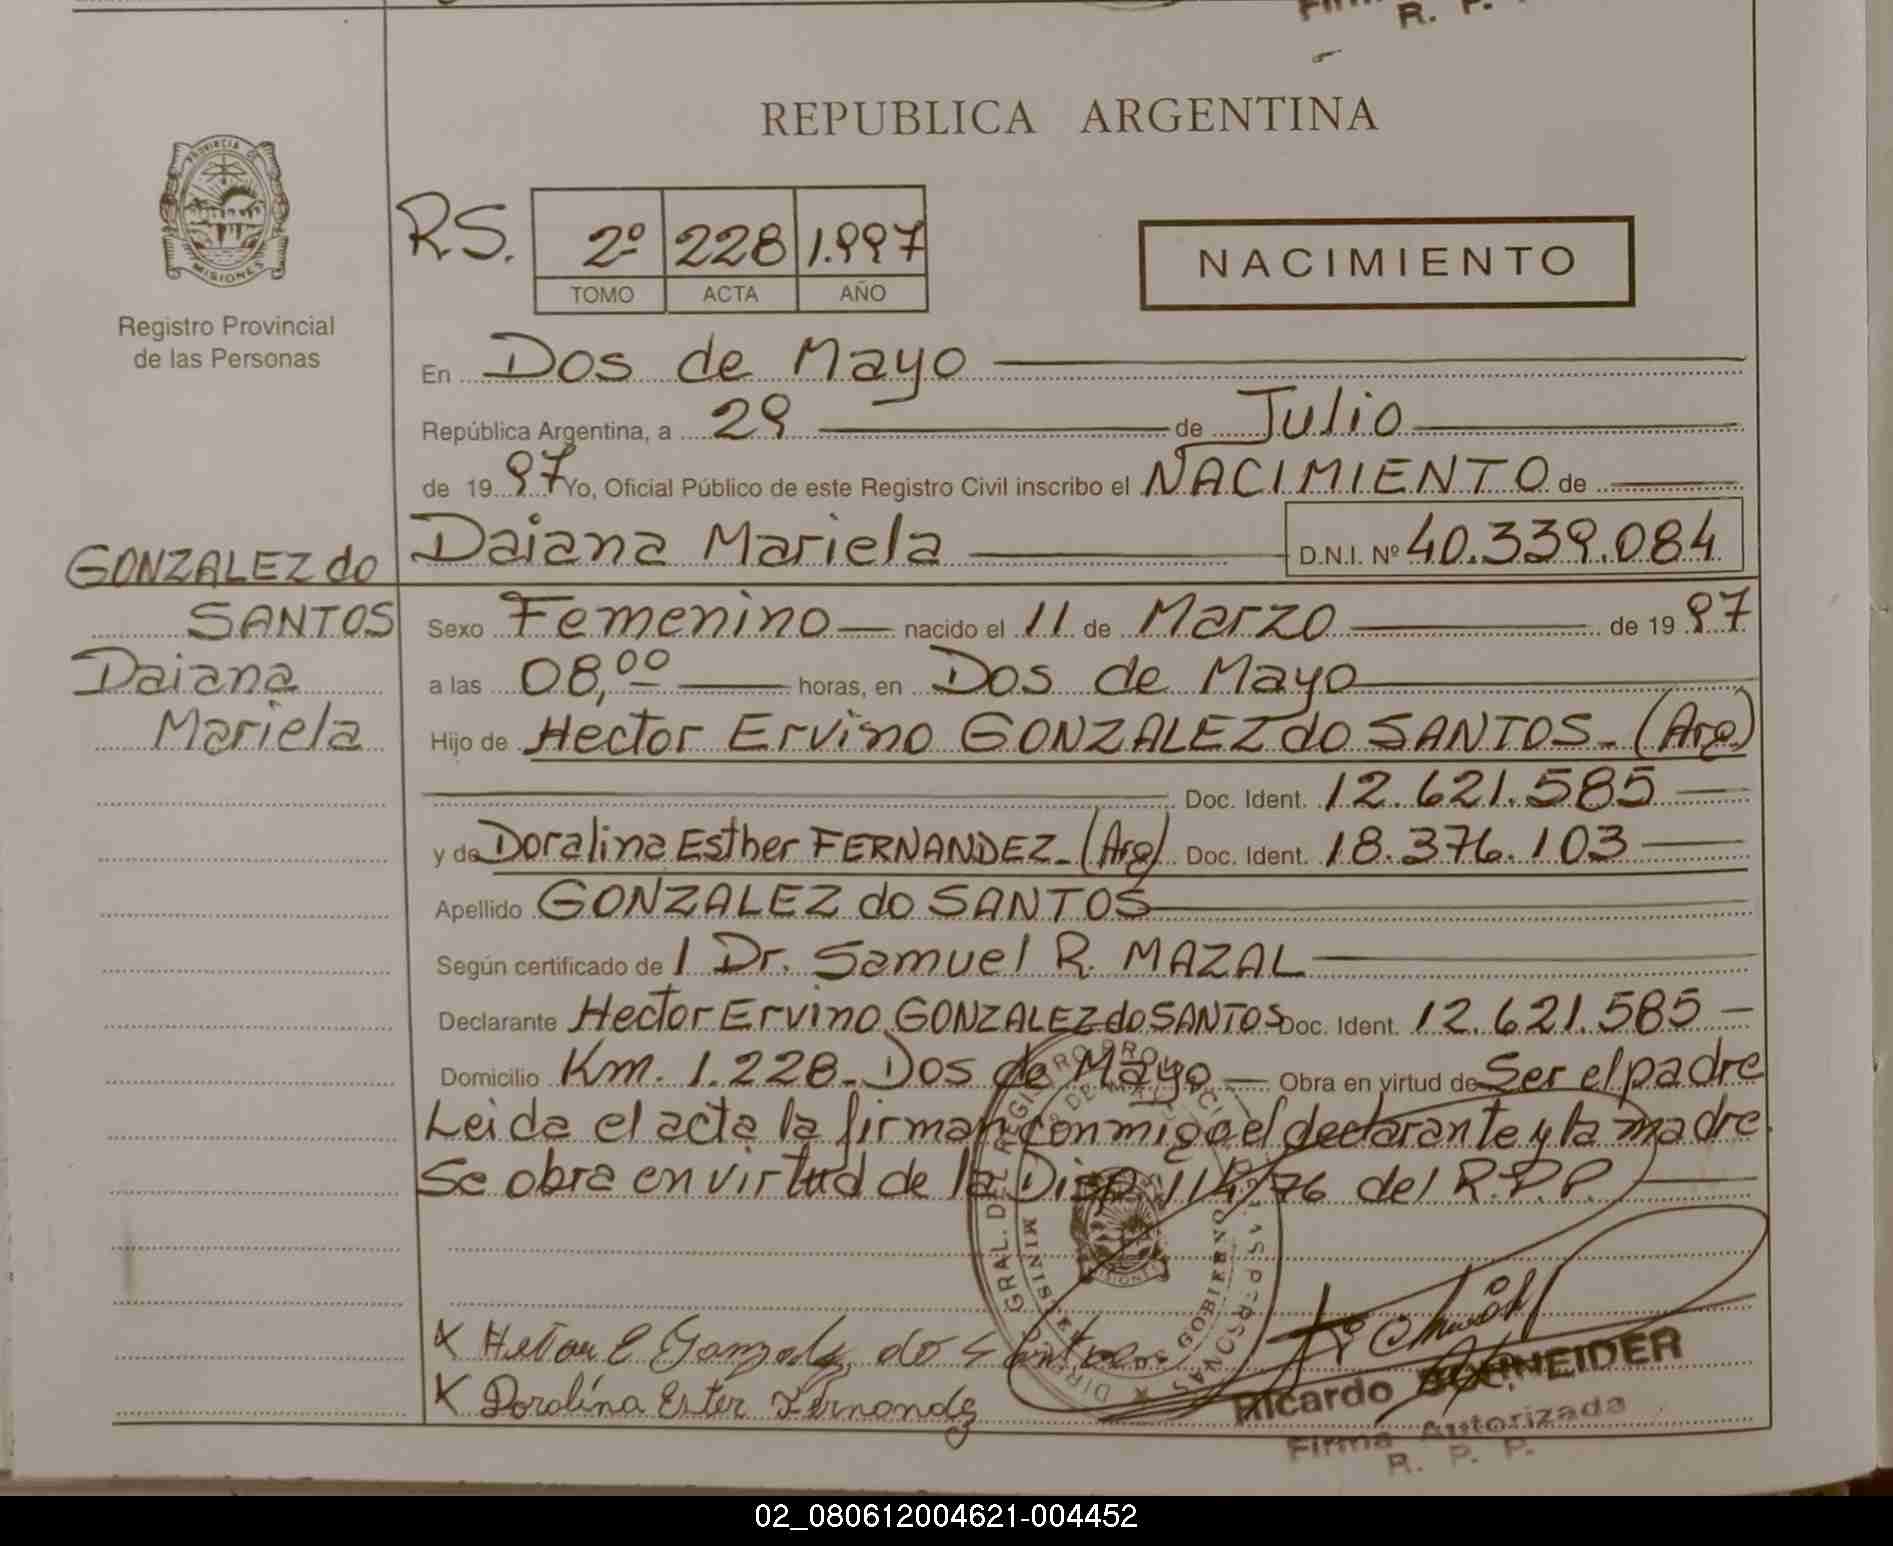 R. P.
REPUBLICA ARGENTINA
PROVINCIA DE MISIONES
Registro Provincial
de las Personas
RS. 2º 228 1.997
TOMO ACTA AÑO
NACIMIENTO
En Dos de Mayo
República Argentina, a 29 de Julio
de 19 97 Yo, Oficial Público de este Registro Civil inscribo el NACIMIENTO de
Daiana Mariela D.N.I. Nº 40.339.084
GONZALEZ do
SANTOS
Daiana
Mariela
Sexo Femenino nacido el 11 de Marzo de 19 97
a las 08,00 horas, en Dos de Mayo
Hijo de Hector Ervino GONZALEZ do SANTOS- (Arg)
Doc. Ident. 12.621.585
y de Doralina Esther FERNANDEZ- (Arg) Doc. Ident. 18.376.103
Apellido GONZALEZ do SANTOS
Según certificado de 1 Dr. Samuel R. MAZAL
Declarante Hector Ervino GONZALEZ do SANTOS Doc. Ident. 12.621.585
Domicilio Km. 1.228- Dos de Mayo Obra en virtud de Ser el padre
Leida el acta la firman conmigo el declarante y la madre.
Se obra en virtud de la Disp. 114/76 del R.P.P.
X Hector E Gonzalez do Santos
X Doralina Ester Fernandez
Ricardo SCHNEIDER
Firma Autorizada
R. P. P.
02_080612004621-004452